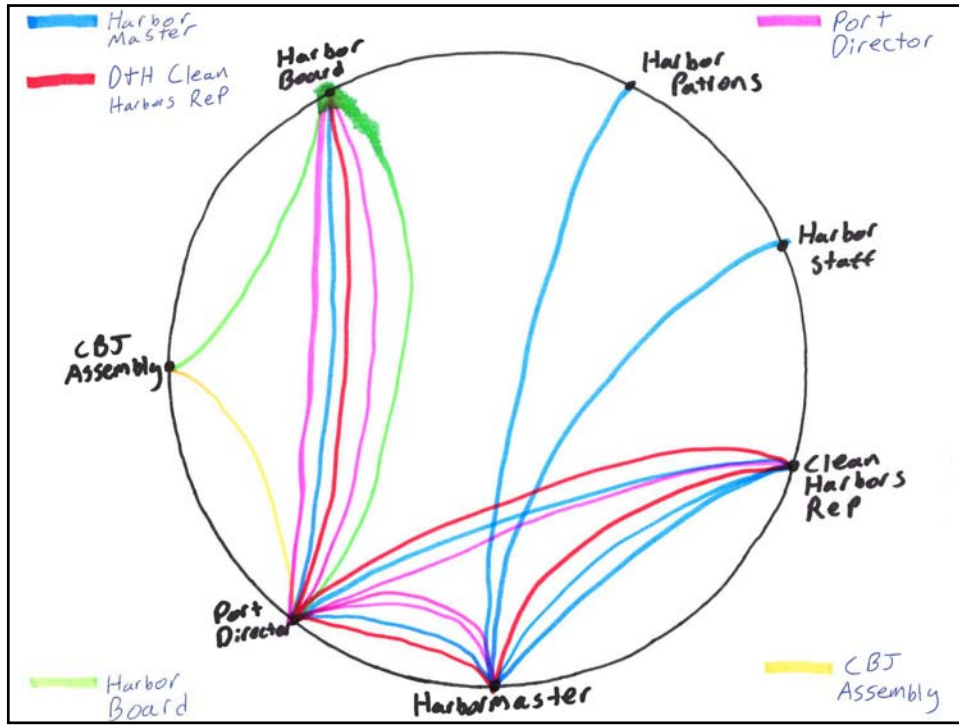 Harbor
Master
D+H Clean
Harbors Rep
Port
Director
Harbor
Board
Harbor
Patrons
Harbor
staff
CBJ
Assembly
Clean
Harbors
Rep
Port
Director
Harbormaster
Harbor
Board
CBJ
Assembly